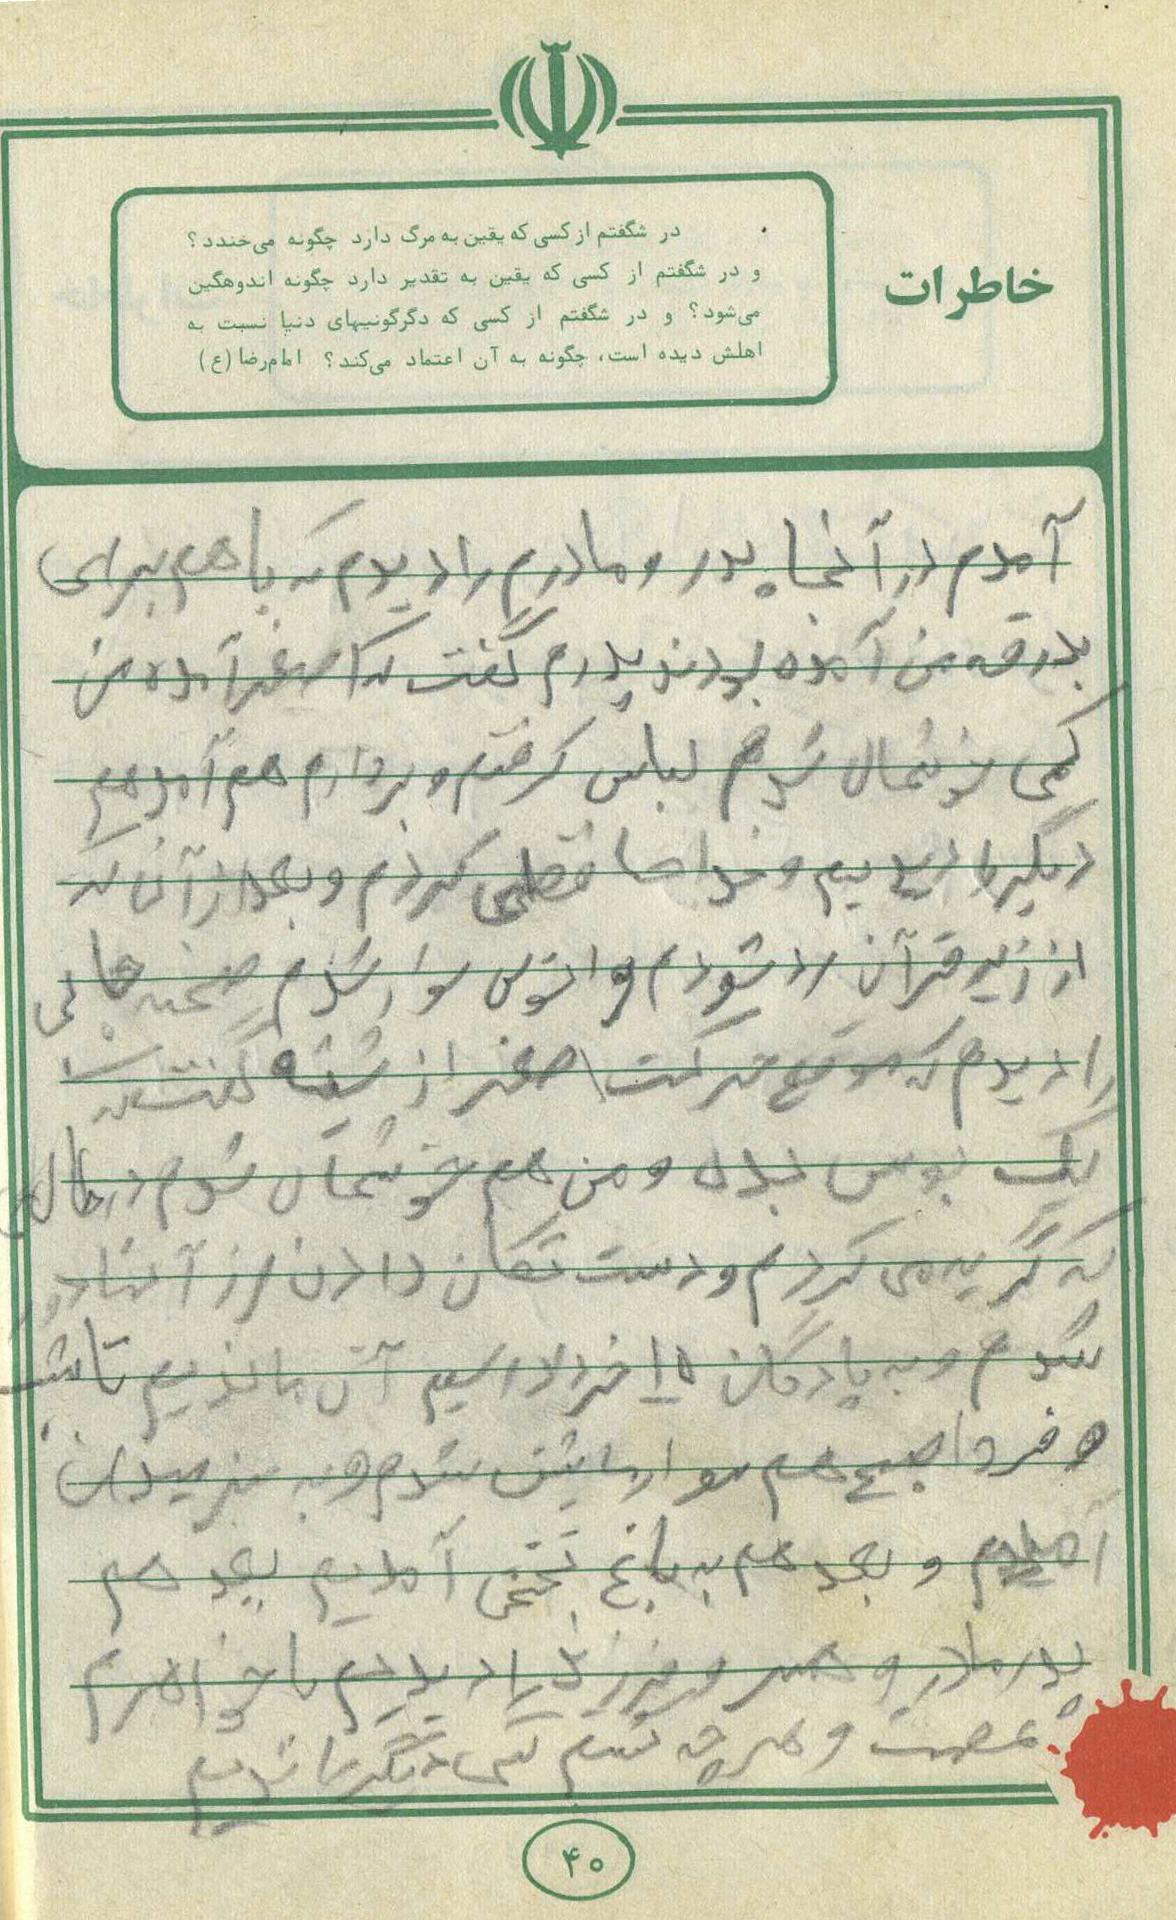 خاطرات
در شگفتم از کسی که یقین به مرگ دارد چگونه می‌خندد؟
و در شگفتم از کسی که یقین به تقدیر دارد چگونه اندوهگین
می‌شود؟ و در شگفتم از کسی که دگرگونیهای دنیا نسبت به
اهلش دیده است، چگونه به آن اعتماد می‌کند؟ امام‌رضا (ع)
آمدم در آنجا پدر و مادرم را دیدم که با هم برای
بدرقه من آمده بودند پدرم گفت که اصغر آمده من
کمی خوشحال شدم لباس گرفتم و برادرم هم آمد هم
دیگر را دیدیم و خداحافظی کردم و بعد از آنکه
از زیر قرآن رد شودم و اتوبوس سوار شدم صحنه جالبی
را دیدم که موقع حرکت اصغر از شیشه گفت که
یک بوس بده و من هم خوشحال شدم در حالی
که گریه می کردم و دست تکان دادن از آنها دور
شدم و به پادگان ۱۵ خرداد رسیدیم آن ماندیم تا شب
و فردا صبح هم سوار ماشین شدم و به میدان
آمدیم و بعد هم به باغ آمدیم بعد هم
پدر مادر و همسر و فرزند را دیدیم با خواهرم
عصمت و هر چه کسی دیگر را ندیدیم
۴۰